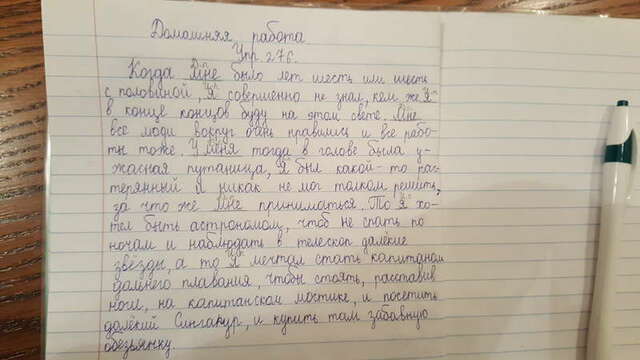 Домашняя работа
Упр 276
Когда мне было лет шесть или шесть
с половиной, я совершенно не знал, кем же я
в конце концов буду на этом свете. Мне
все люди вокруг очень нравились и все рабо-
ты тоже. У меня тогда в голове была у-
жасная путаница, я был какой-то рас-
терянный и никак не мог толком решить,
за что же мне приниматься. То я хо-
тел быть астрономом, чтоб не спать по
ночам и наблюдать в телескоп далёкие
звёзды, а то я мечтал стать капитаном
дальнего плавания, чтобы стоять, расставив
ноги, на капитанском мостике, и посетить
далёкий Сингапур, и купить там забавную
обезьянку